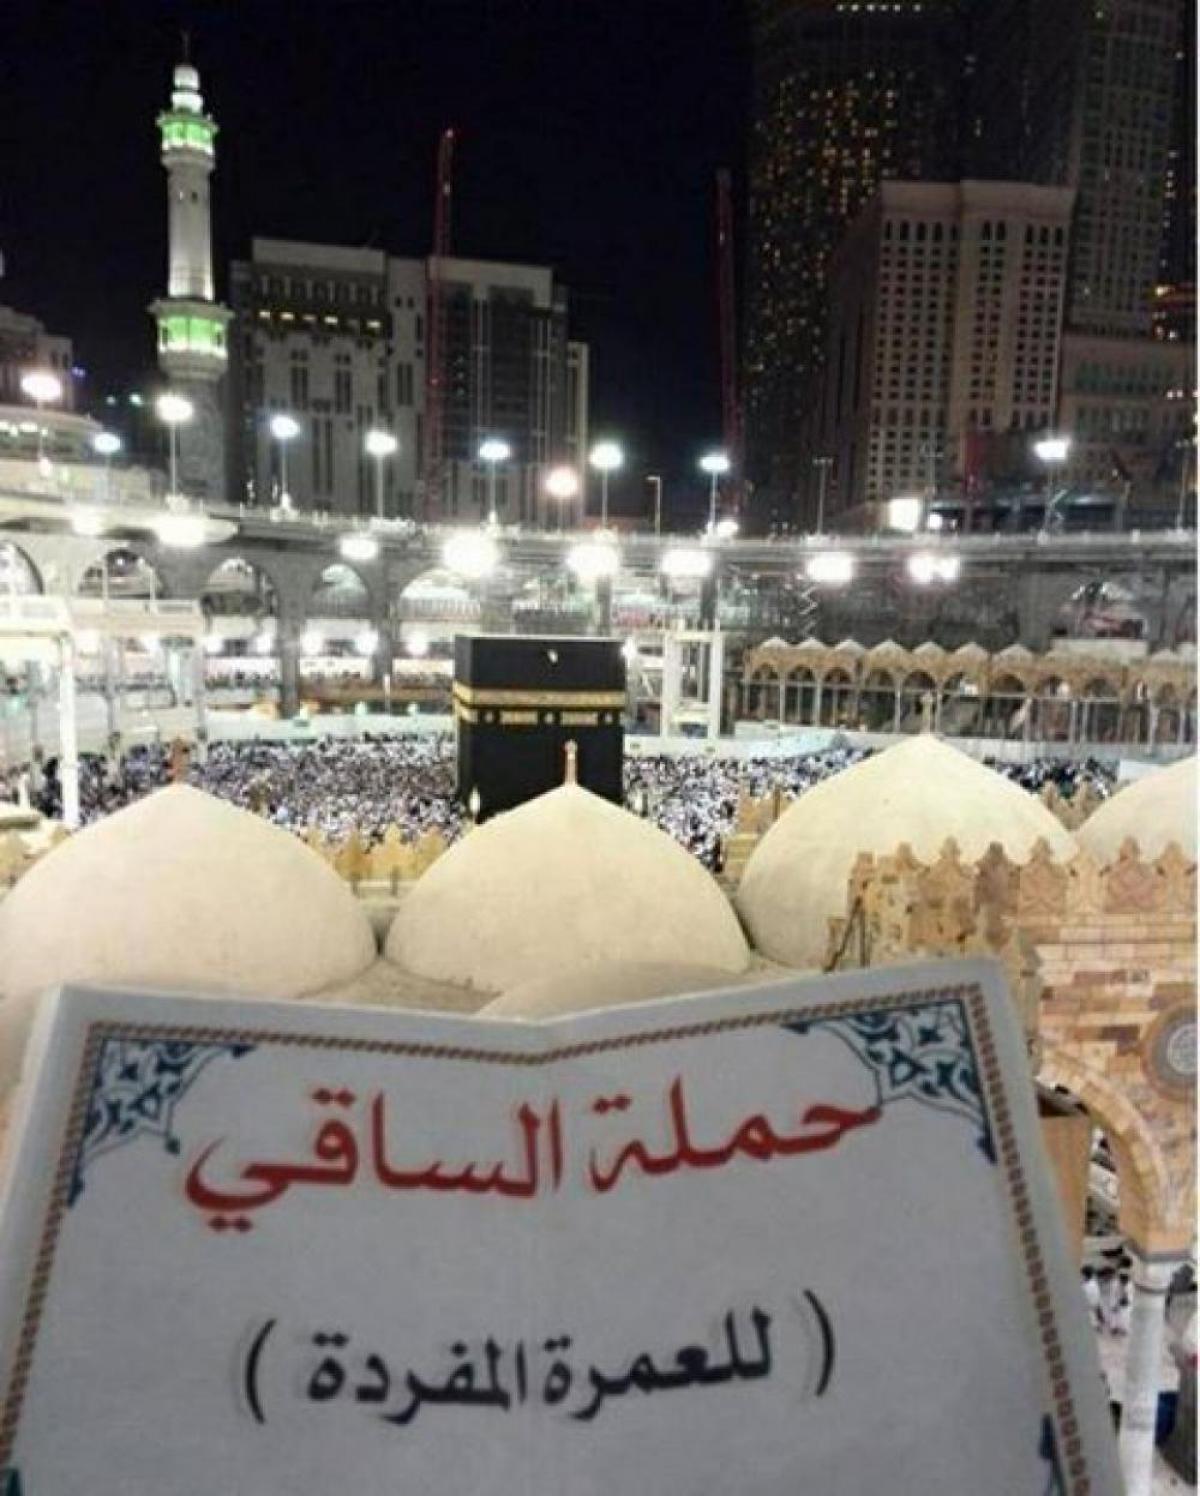 حملة الساقي
( للعمرة المفردة )